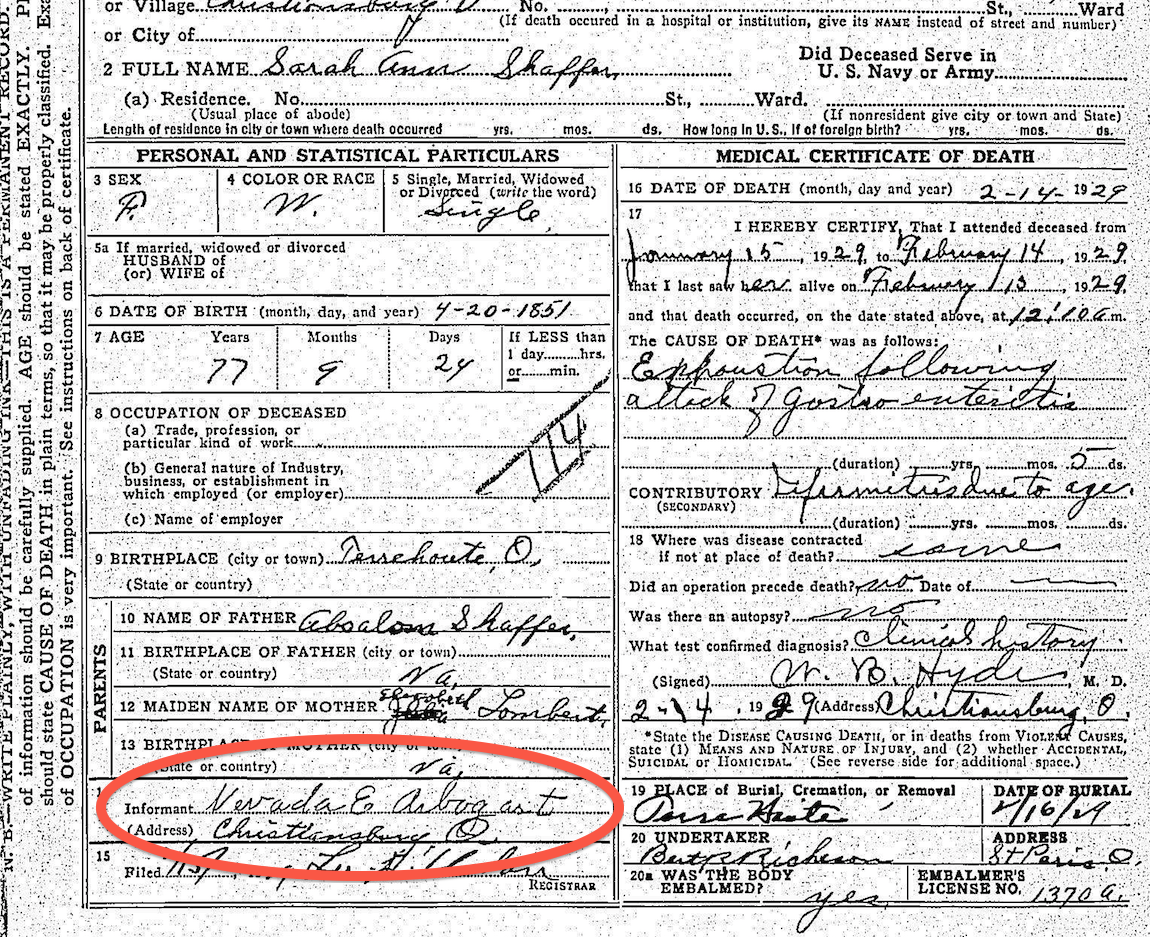 or Village Christiansburg O. No. St., Ward
(If death occured in a hospital or institution, give its NAME instead of street and number)
or City of
2 FULL NAME Sarah Ann Shaffer,
Did Deceased Serve in
U. S. Navy or Army
(a) Residence. No. St., Ward.
(Usual place of abode) (If nonresident give city or town and State)
Length of residence in city or town where death occurred yrs. mos. ds. How long in U. S., if of foreign birth? yrs. mos. ds.
N. B.—WRITE PLAINLY, WITH UNFADING INK—THIS IS A PERMANENT RECORD.
of information should be carefully supplied. AGE should be stated EXACTLY.
should state CAUSE OF DEATH in plain terms, so that it may be properly classified.
of OCCUPATION is very important. See instructions on back of certificate.
PERSONAL AND STATISTICAL PARTICULARS
3 SEX
F.
4 COLOR OR RACE
W.
5 Single, Married, Widowed
or Divorced (write the word)
Single
5a If married, widowed or divorced
HUSBAND of
(or) WIFE of
6 DATE OF BIRTH (month, day, and year) 4-20-1851
7 AGE Years Months Days If LESS than
1 day hrs.
or min.
77 9 24
8 OCCUPATION OF DECEASED
(a) Trade, profession, or
particular kind of work
(b) General nature of Industry,
business, or establishment in
which employed (or employer)
(c) Name of employer
114
9 BIRTHPLACE (city or town) Terrehoute, O.
(State or country)
PARENTS
10 NAME OF FATHER Absalom Shaffer,
11 BIRTHPLACE OF FATHER (city or town)
(State or country) Va.
12 MAIDEN NAME OF MOTHER Elizabeth Lombert.
13 BIRTHPLACE OF MOTHER (city or town)
(State or country) Va.
Informant Nevada E Arbogast
(Address) Christiansburg O.
15
Filed
REGISTRAR
MEDICAL CERTIFICATE OF DEATH
16 DATE OF DEATH (month, day and year) 2-14-1929
17
I HEREBY CERTIFY, That I attended deceased from
January 15, 1929, to February 14, 1929,
that I last saw her alive on February 13, 1929,
and that death occurred, on the date stated above, at 12:10 a m.
The CAUSE OF DEATH* was as follows:
Exhaustion following
attack of Gastro enteritis
(duration) yrs. mos. 5 ds.
CONTRIBUTORY Infirmities due to age.
(SECONDARY)
(duration) yrs. mos. ds.
18 Where was disease contracted
if not at place of death? same
Did an operation precede death? no Date of
Was there an autopsy? no
What test confirmed diagnosis? Clinical history
(Signed) W. B. Hyde, M. D.
2-14, 1929 (Address) Christiansburg, O.
*State the DISEASE CAUSING DEATH, or in deaths from VIOLENT CAUSES,
state (1) MEANS AND NATURE OF INJURY, and (2) whether ACCIDENTAL,
SUICIDAL or HOMICIDAL. (See reverse side for additional space.)
19 PLACE of Burial, Cremation, or Removal
Terre Haute
DATE OF BURIAL
2/16/29
20 UNDERTAKER
Bert R Richeson
ADDRESS
St Paris O.
20a WAS THE BODY
EMBALMED? yes.
EMBALMER'S
LICENSE NO. 1370a.